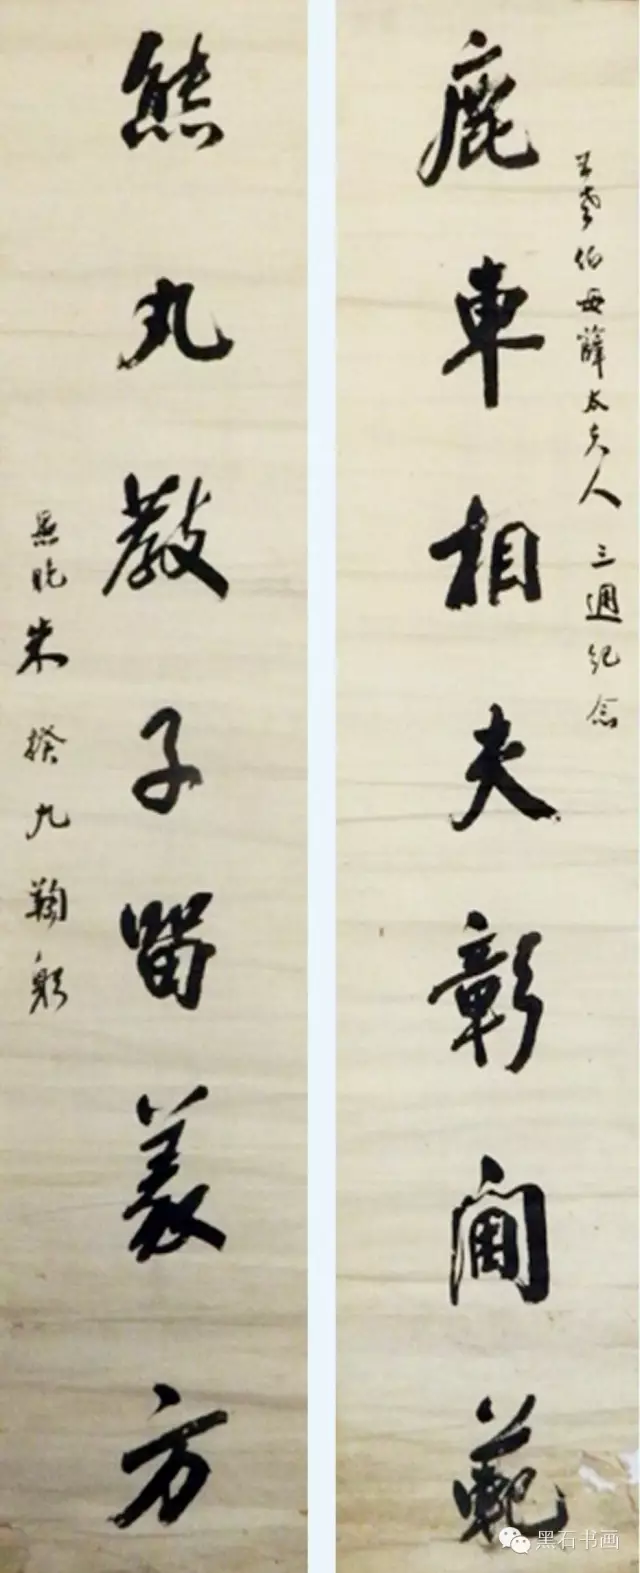 王老伯母薛太夫人 三週紀念
鹿車相夫彰閫範
熊丸教子留義方
愚晚朱揆九鞠躬
黑石书画